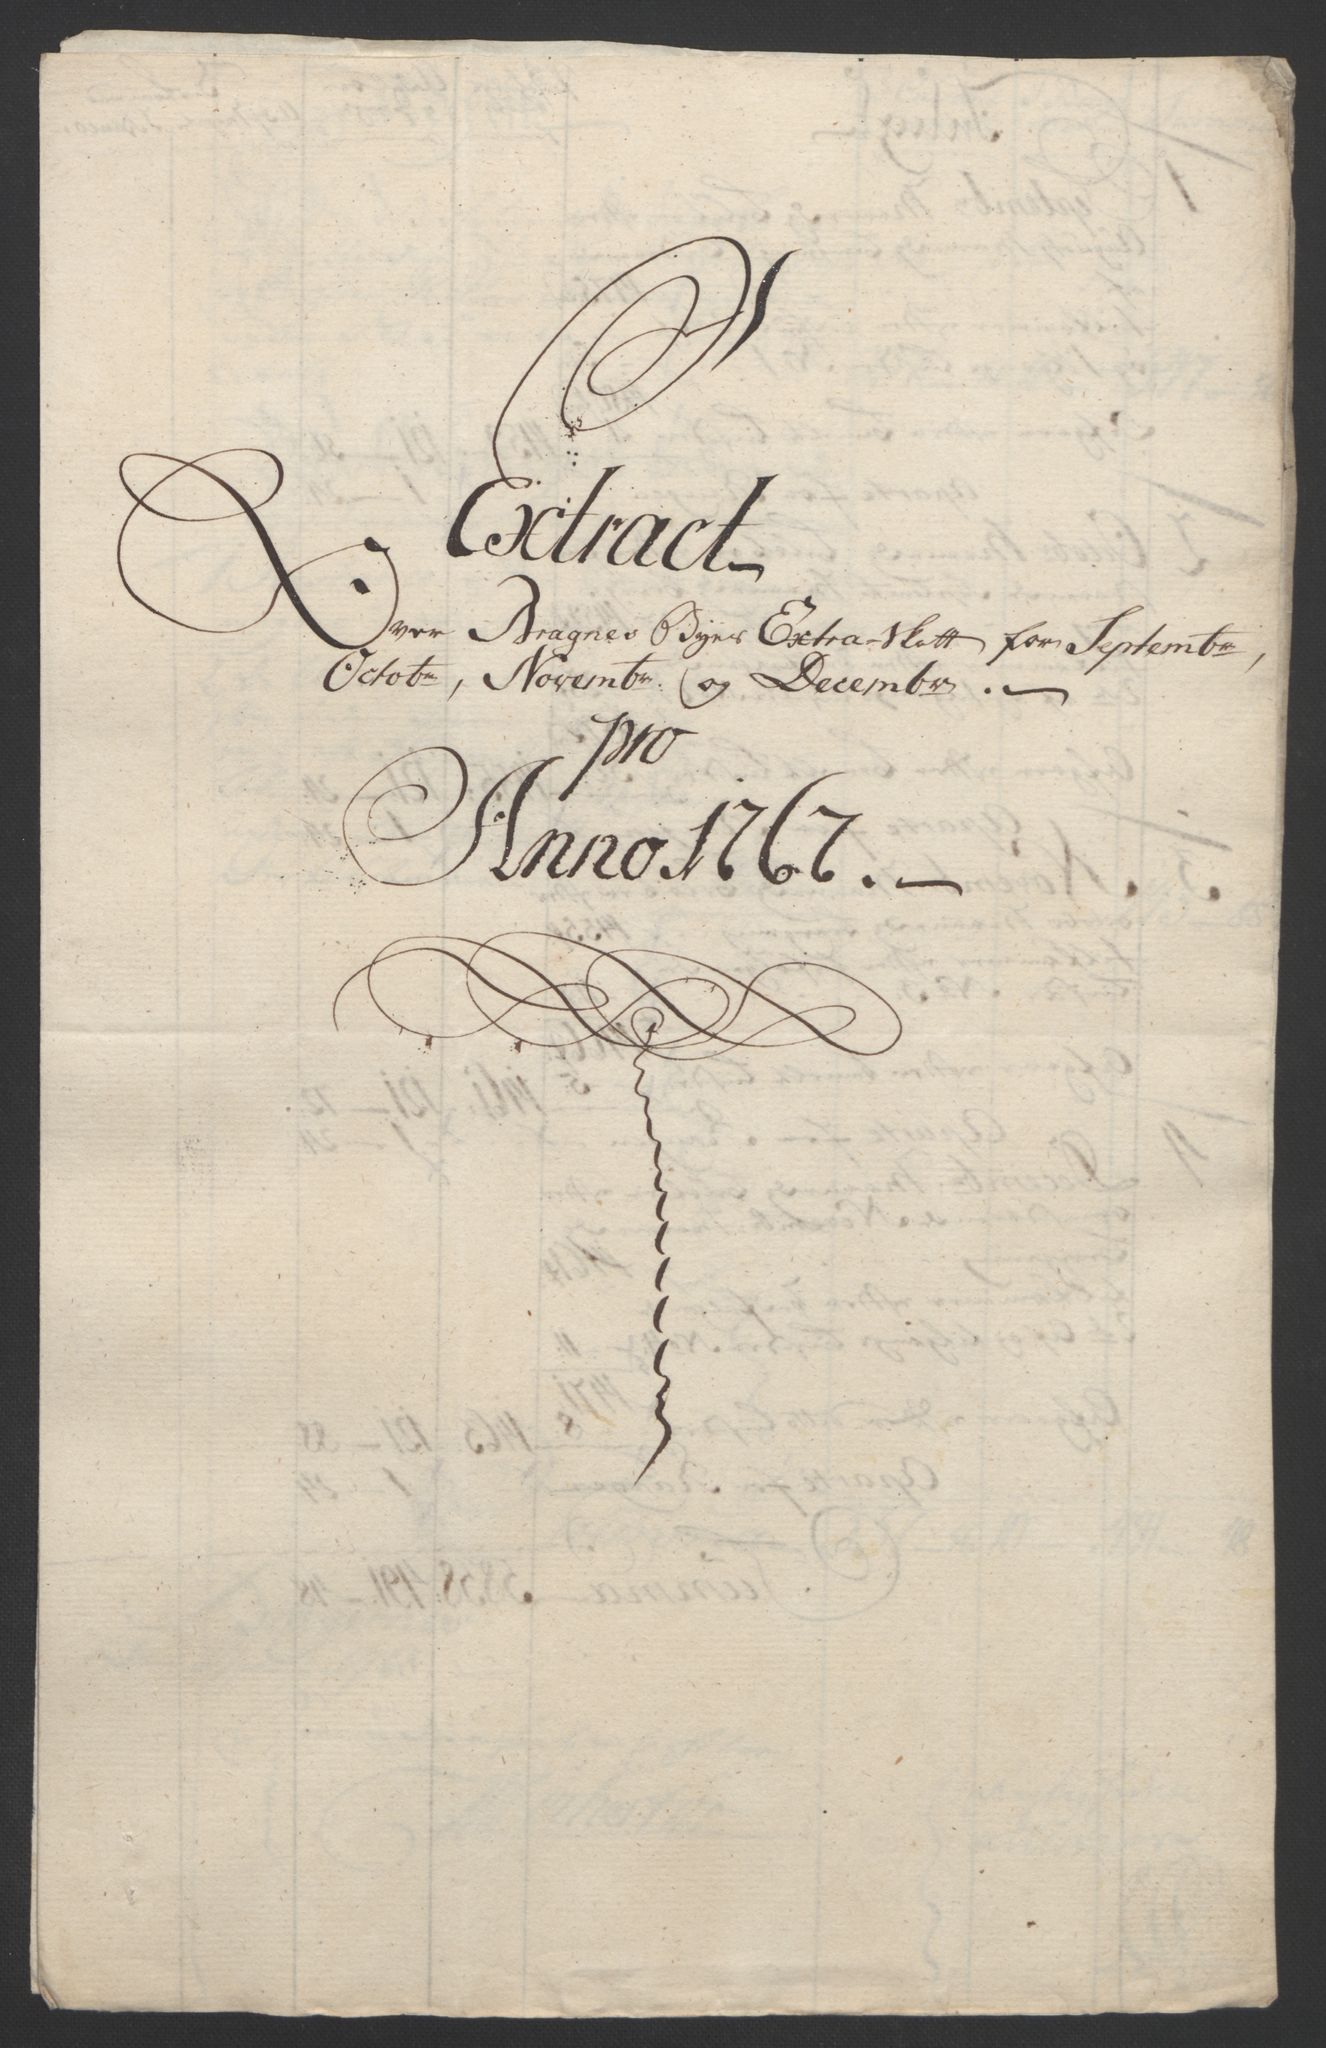 Extract
Over Bragnes Byes Extra-Skatt for Septembr,
Octobr, Novembr. og Decembr.
pro
Anno 1767.